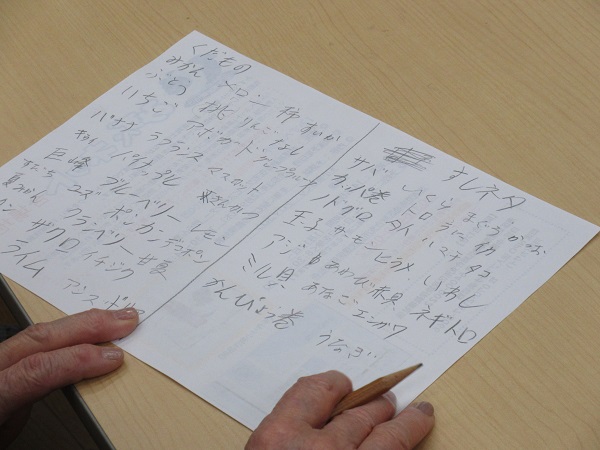 くだもの
みかん メロン 柿 すいか
ぶどう 桃 りんご なし
いちご アボガド グレープフルーツ
バナナ ラフランス マスカット
キウイ パイナップル
巨峰 ブルーベリー レモン
すだち ユズ ポンカン デコポン
夏みかん クランベリー
ザクロ イチジク
ライム アンズ
すしネタ
サバ いくら まぐろ かつお
カッパ巻 トロ うに
ノドグロ タイ ハマチ タコ
玉子 サーモン ヒラメ いわし
アジ あわび 赤貝 ネギトロ
ミル貝 あなご エンガワ
かんぴょう巻 うなぎ